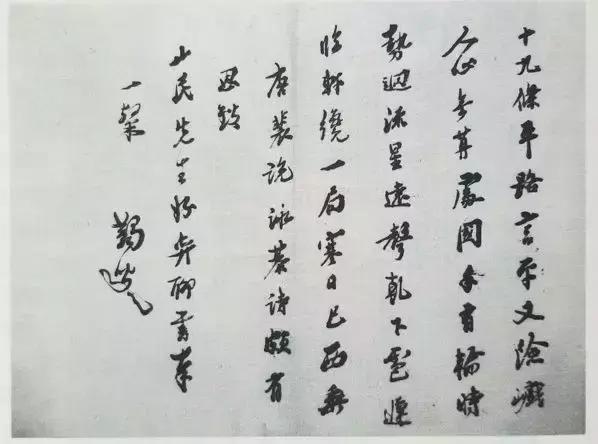 十九條平路言平又險巇
人心無算處國手有輸時
勢迴流星遠聲乾下雹遲
臨軒纔一局寒日已西垂
唐裴說詠棊詩頗有
思
山民先生好弈聊書奉
一粲
蠲叟